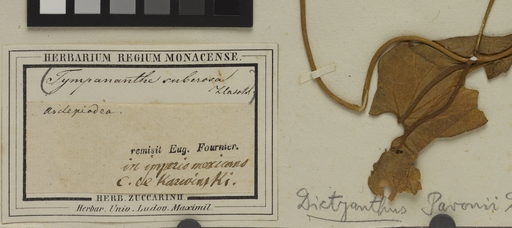 HERBARIUM REGIUM MONACENSE.
(Tympananthe suberosa
Hassk)
Asclepiadea.
remisit Eug. Fournier.
in imperio mexicano
C. de Karwinski.
HERB. ZUCCARINII
Herbar. Univ. Ludov. Maximil.
Dictyanthus Pavonii